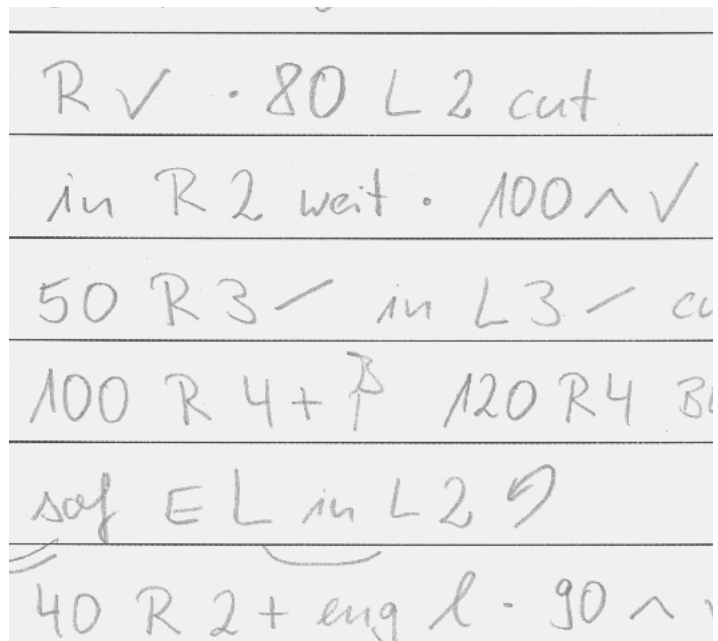 R ✓ · 80 L 2 cut
in R 2 weit · 100 ^ ✓
50 R 3 — in L 3 —
100 R 4 + 120 R 4
sof E L in L 2
40 R 2 + eng l · 90 ^